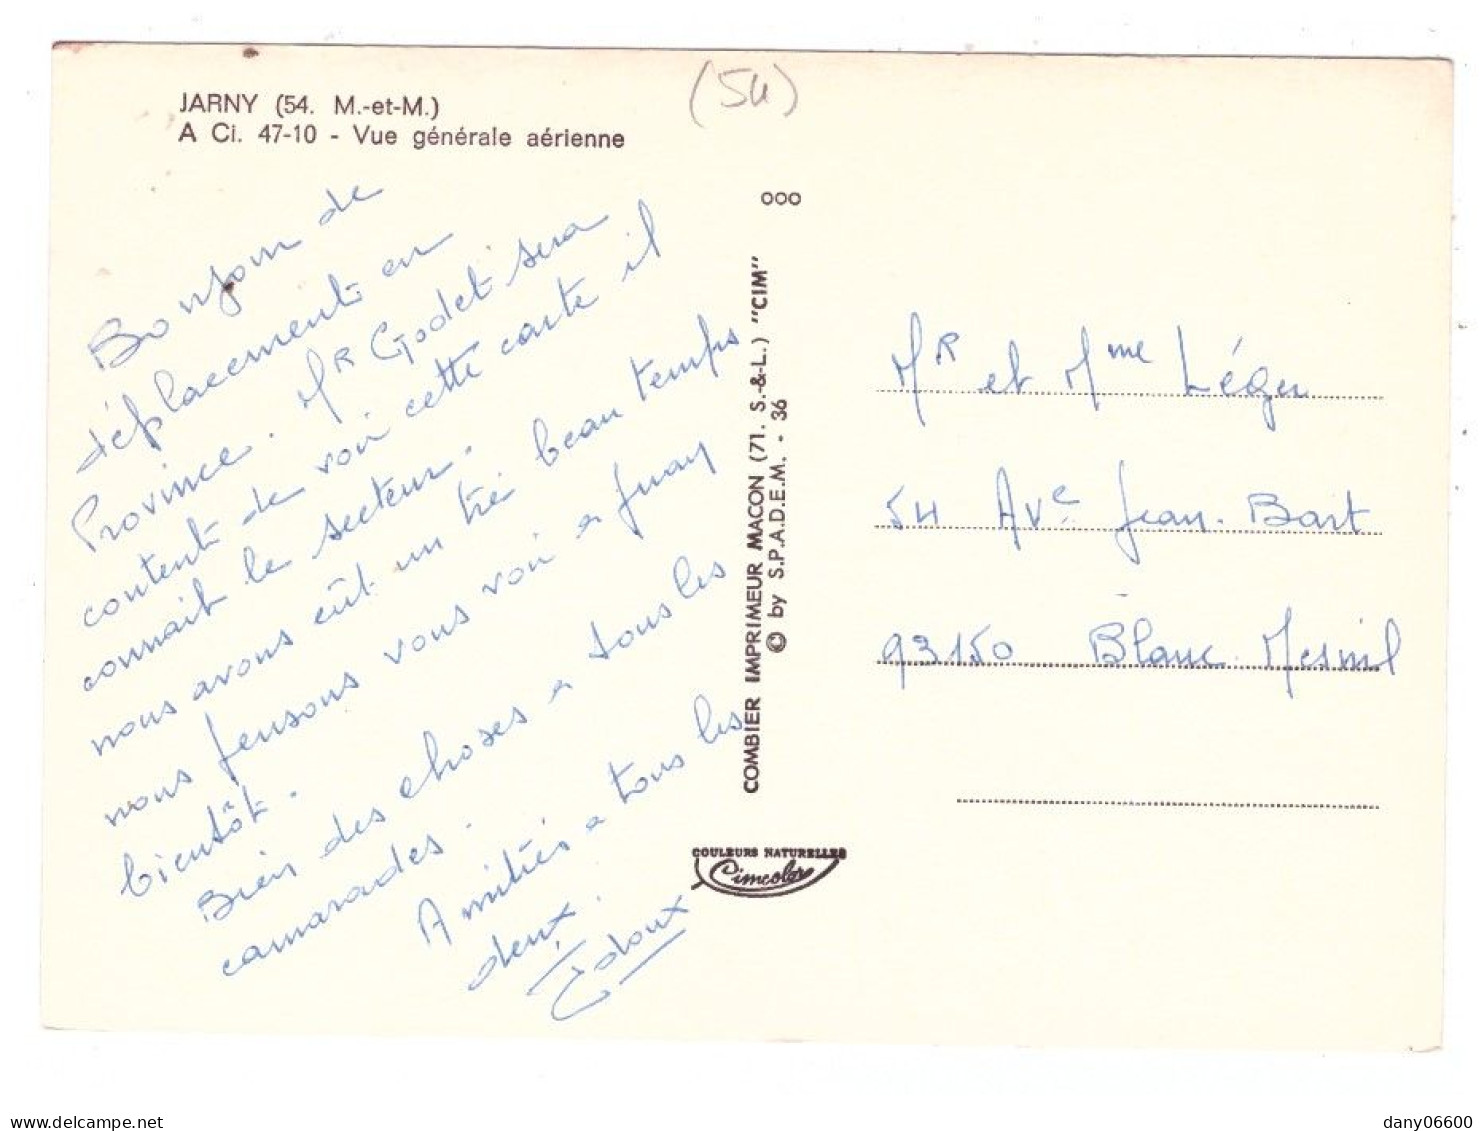 (54)
JARNY (54. M.-et-M.)
A Ci. 47-10 - Vue générale aérienne
Bonjour de
déplacement en
Province. Mr Godet sera
content de voir cette carte il
connait le secteur.
nous avons eût un tré beau temps
nous pensons vous voir a
bientôt.
Bien des choses a tous les
camarades.
Amitiés a tous les
deux.
ooo
COMBIER IMPRIMEUR MACON (71. S.-&-L.) "CIM"
© by S.P.A.D.E.M. - 36
COULEURS NATURELLES
Cimcolor
Mr et Mme Léger
54 Ave Jean-Bart
93150 Blanc-Mesnil
delcampe.net
dany06600